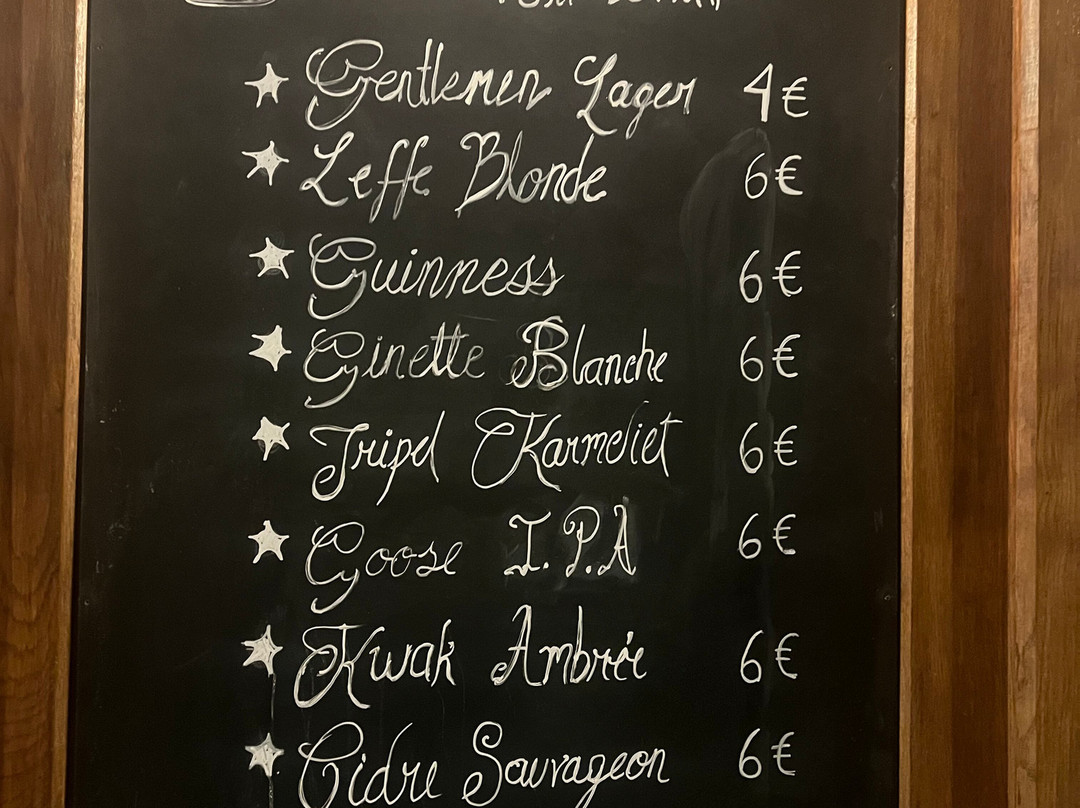 Gentlemen Lager 4€
Leffe Blonde 6€
Guinness 6€
Ginette Blanche 6€
Tripel Karmeliet 6€
Goose I.P.A 6€
Kwak Ambrée 6€
Cidre Sauvageon 6€